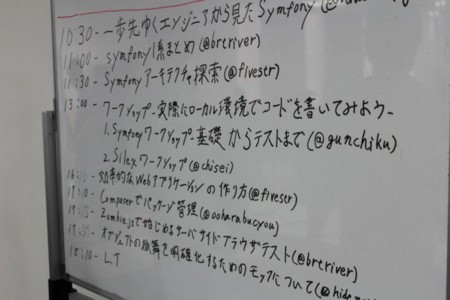 10:30- 一歩先ゆくエンジニアから見たSymfony
11:00- symfony1系まとめ(@brtriver)
11:30- Symfonyアーキテクチャ探索(@fivestr)
13:00- ワークショップ-実際にローカル環境でコードを書いてみよう-
1.Symfonyワークショップ-基礎からテストまで(@gunchiku)
2.Silexワークショップ(@chisei)
効率的なWebアプリケーションの作り方(@fivestr)
Composerでパッケージ管理(@ooharabucyou)
Zombie.jsで始めるサーバサイドブラウザテスト(@brtriver)
オブジェクトの振舞を明確化するためのモックについて
18:10- LT